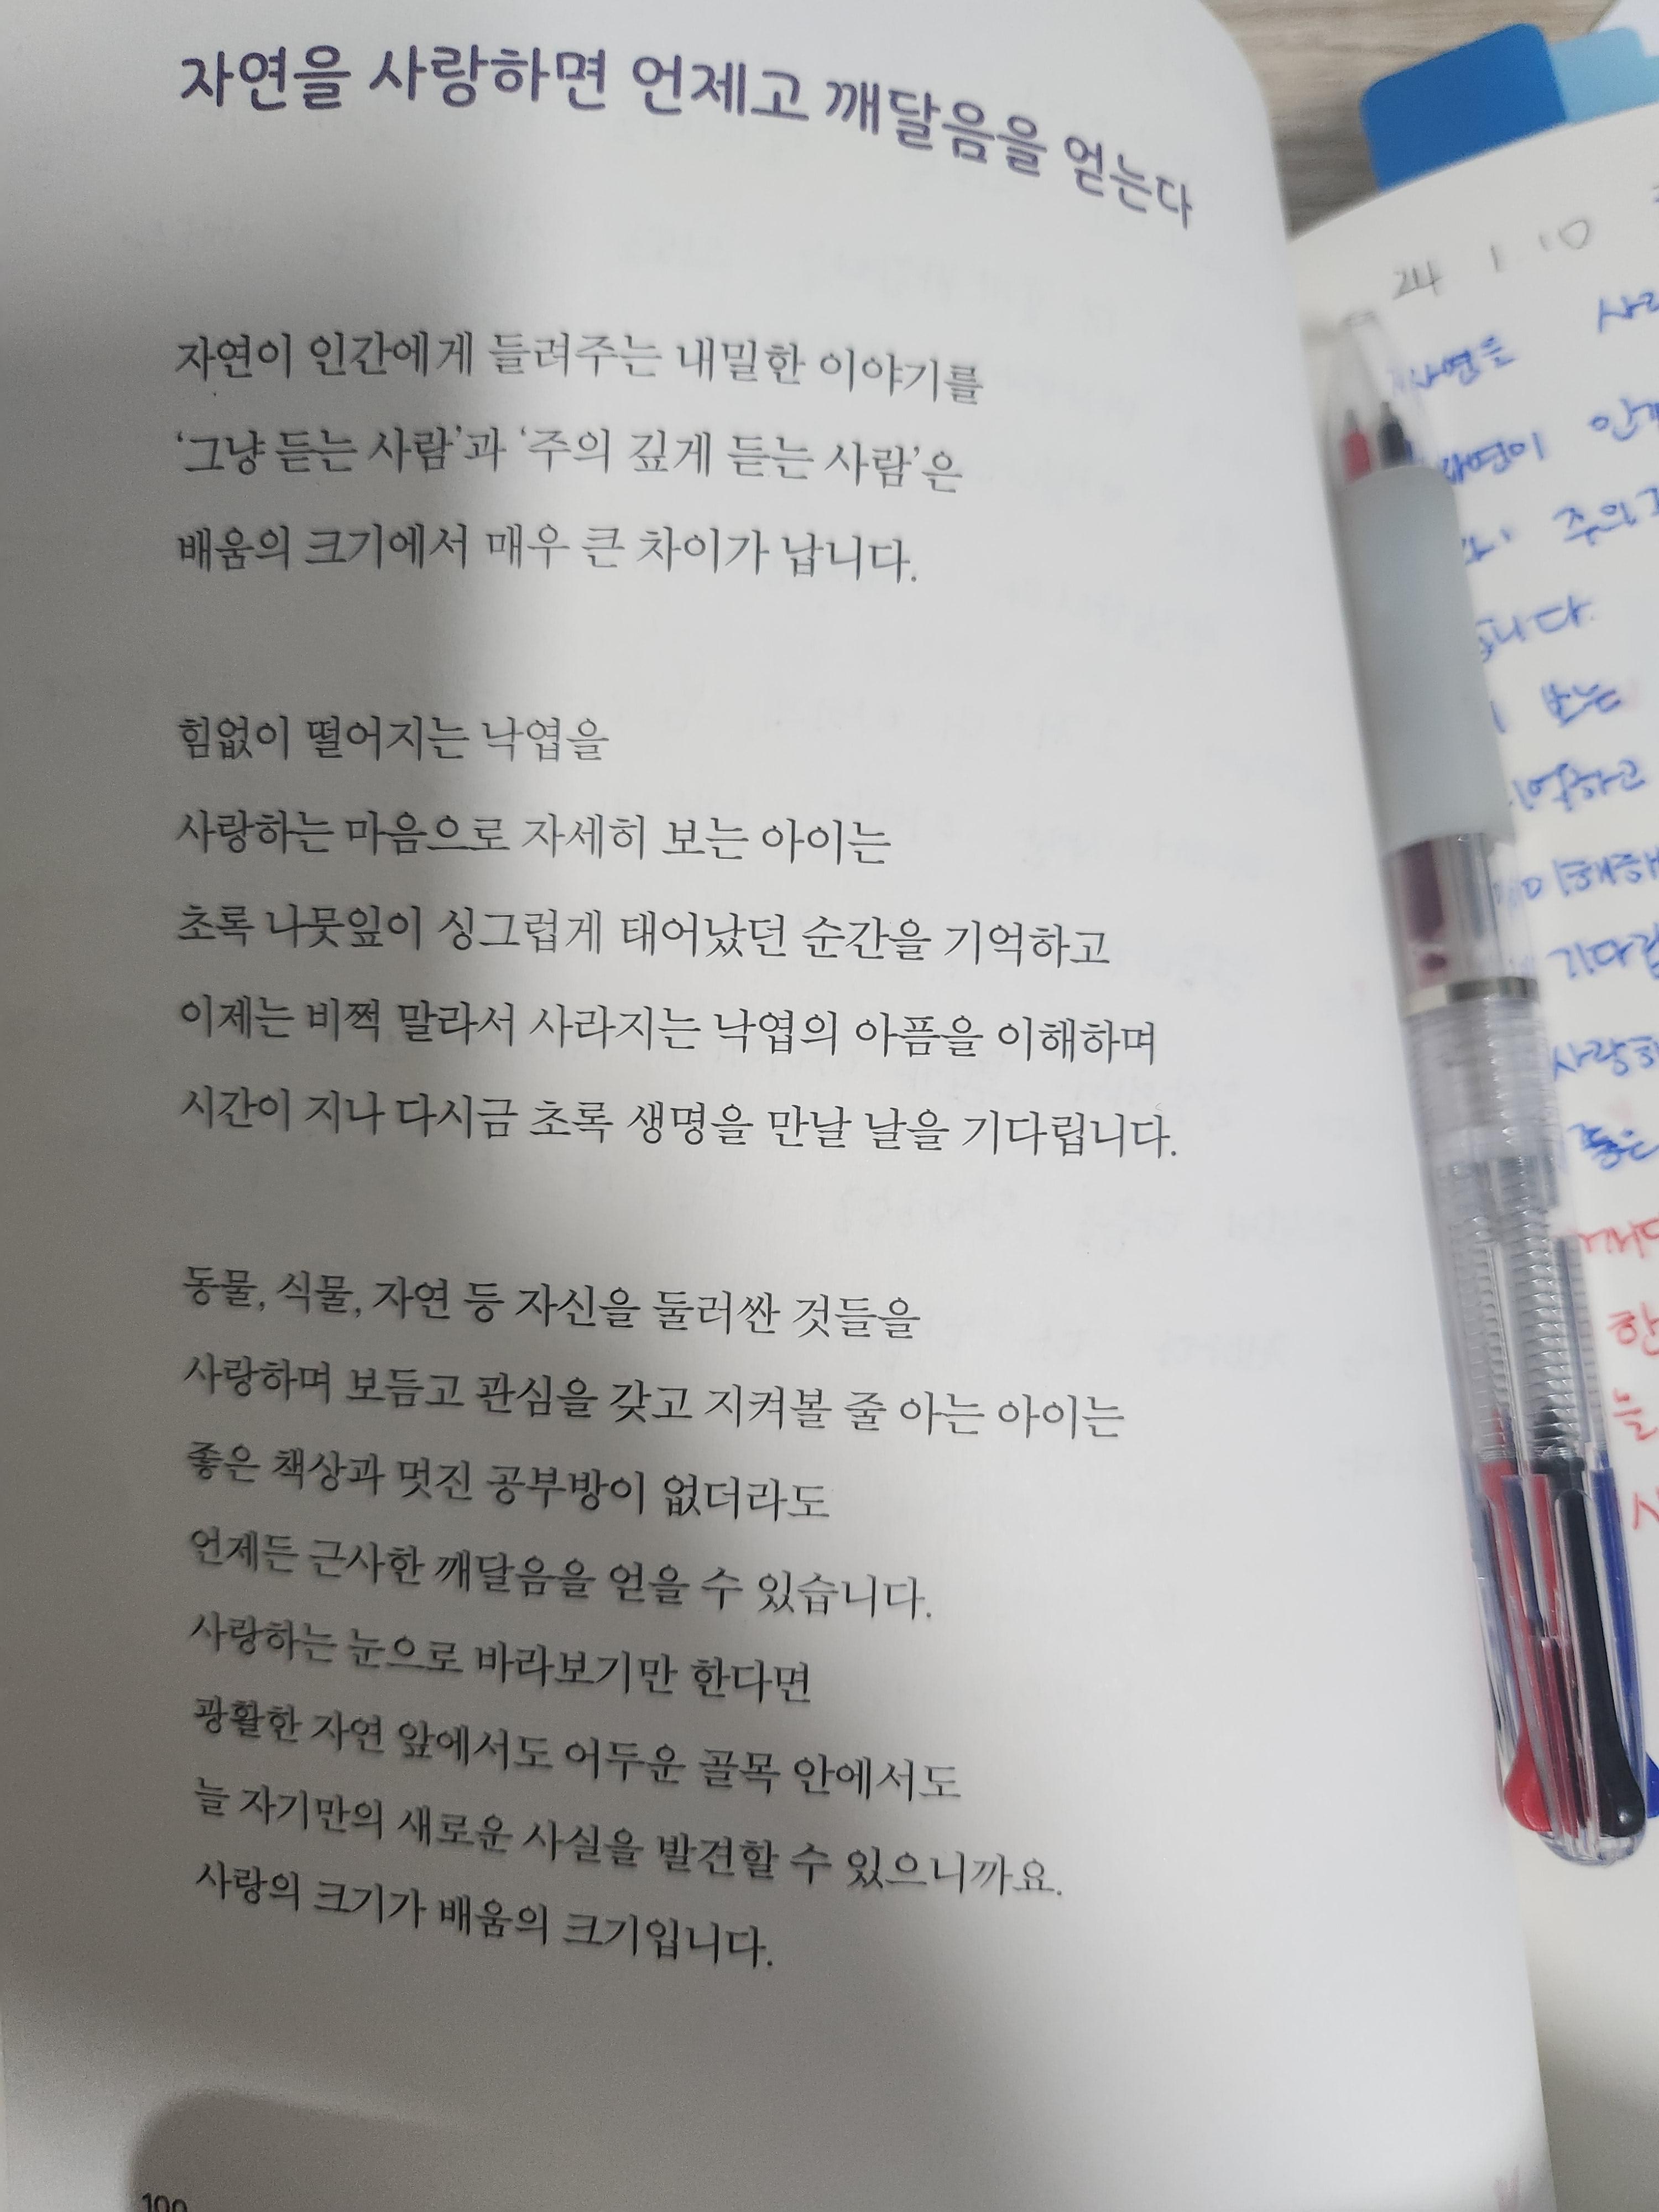 자연을 사랑하면 언제고 깨달음을 얻는다
자연이 인간에게 들려주는 내밀한 이야기를
‘그냥 듣는 사람’과 ‘주의 깊게 듣는 사람’은
배움의 크기에서 매우 큰 차이가 납니다.
힘없이 떨어지는 낙엽을
사랑하는 마음으로 자세히 보는 아이는
초록 나뭇잎이 싱그럽게 태어났던 순간을 기억하고
이제는 비쩍 말라서 사라지는 낙엽의 아픔을 이해하며
시간이 지나 다시금 초록 생명을 만날 날을 기다립니다.
동물, 식물, 자연 등 자신을 둘러싼 것들을
사랑하며 보듬고 관심을 갖고 지켜볼 줄 아는 아이는
좋은 책상과 멋진 공부방이 없더라도
언제든 근사한 깨달음을 얻을 수 있습니다.
사랑하는 눈으로 바라보기만 한다면
광활한 자연 앞에서도 어두운 골목 안에서도
늘 자기만의 새로운 사실을 발견할 수 있으니까요.
사랑의 크기가 배움의 크기입니다.
24 1 10
보는
좋은
늘